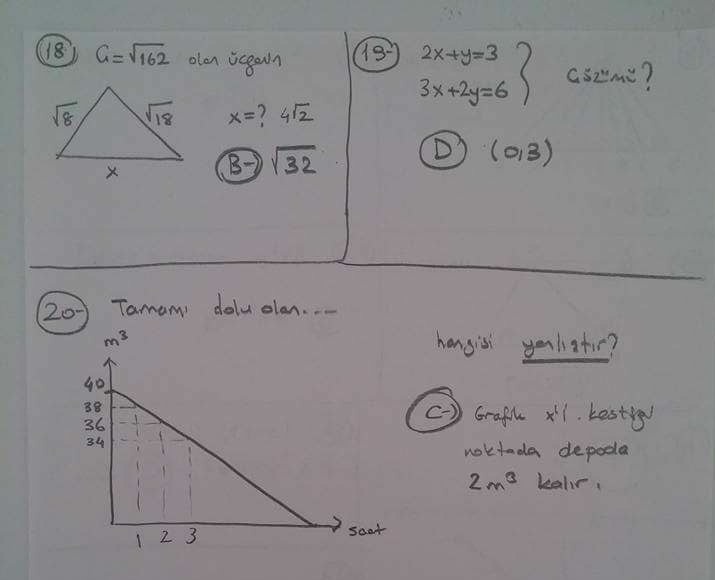 18) Ç=√162 olan üçgenin
√8 √18
x
x=? 4√2
B-) √32
19- 2x+y=3
3x+2y=6
Çözümü?
D (0,3)
20- Tamamı dolu olan...
m³
40
38
36
34
1 2 3
saat
hangisi yanlıştır?
C-) Grafik x'i kestiği
noktada depoda
2m³ kalır.